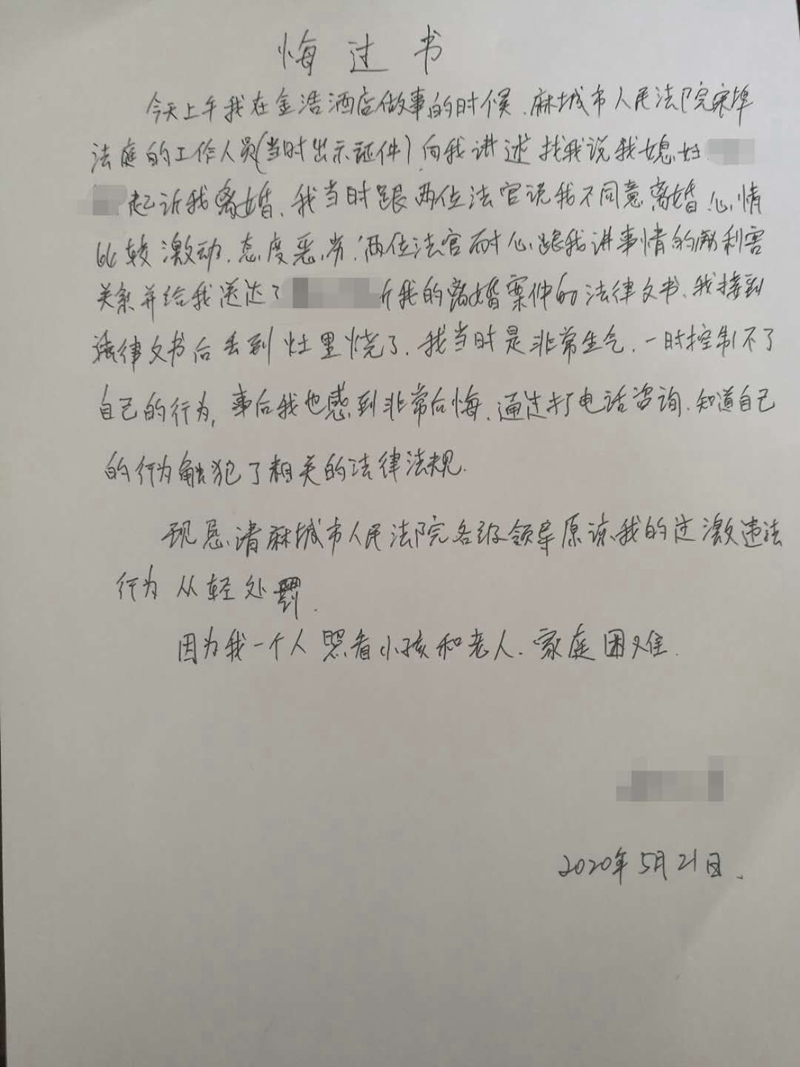 悔过书
今天上午我在金浩酒店做事的时候、麻城市人民法院宋埠
法庭的工作人员(当时出示证件)向我讲述找我说我媳妇
起诉我离婚、我当时跟两位法官说我不同意离婚心情
比较激动、态度恶劣、两位法官耐心跟我讲事情的利害
关系并给我送达了诉我的离婚案件的法律文书、我接到
法律文书后丢到灶里烧了、我当时是非常生气、一时控制不了
自己的行为,事后我也感到非常后悔、通过打电话咨询、知道自己
的行为触犯了相关的法律法规.
现恳请麻城市人民法院各级领导原谅我的过激违法
行为从轻处罚.
因为我一个人照看小孩和老人、家庭困难.
2020年5月21日.